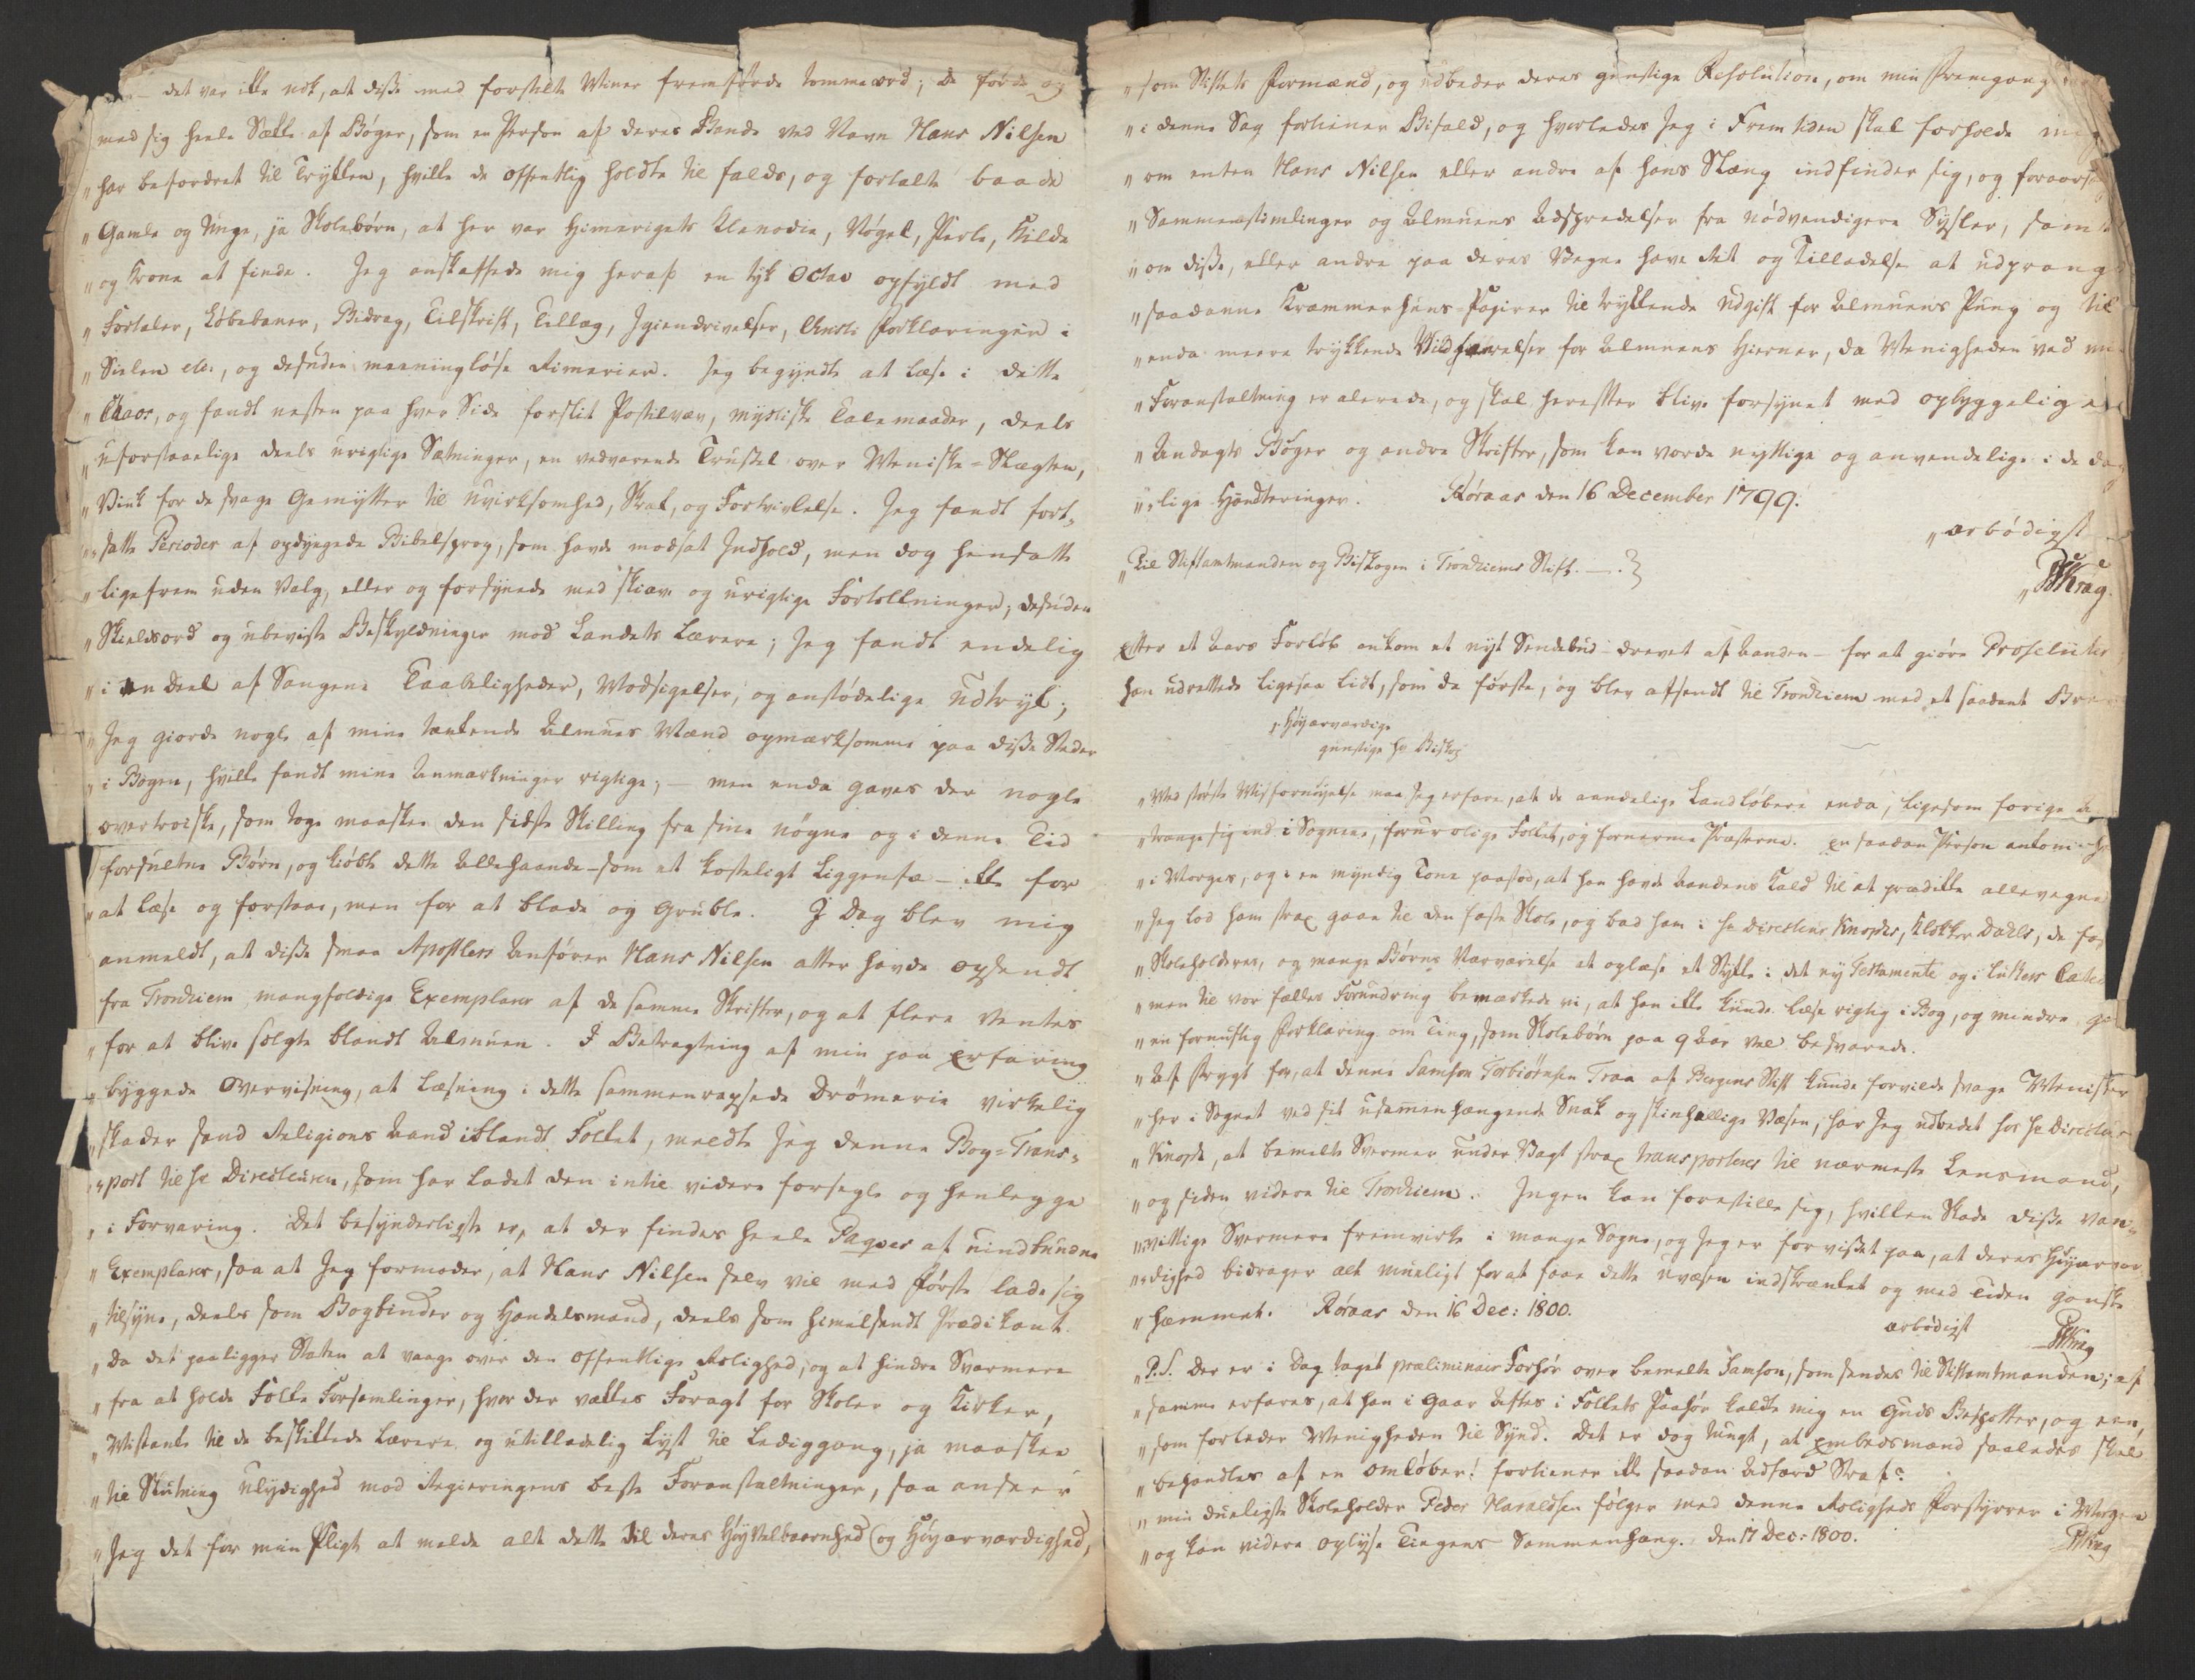 det var ikke nok, at disse med forstilte Miner fremførde tomme ord; de førde og
„med sig heele Sække af Bøger, som en Person af deres Bande ved Navn Hans Nilsen
„har befordret til Trykken, hvilke de offentlig holdte til falds, og fortalte baade
„Gamle og Unge, ja Skolebørn, at her var Himerigets Klenodie, Nøgel, Perle, Kilde
„og Krone at finde. Jeg anskaffede mig heraf en tyk Octav opfyldt med
„Fortaler, Løbebaner, Bidrag, Tilskrift, Tillæg, Igiendrivelser, Christi Forklaringer i
„Sielen etc., og desuden meeningløse Rimerier. Jeg begyndte at læse i dette
„Chaos, og fandt nesten paa hver Side forslit Postilvæv, mystiske Talemaader, deels
„uforstaaelige deels urigtige Sætninger, en vedvarende Trussel over Menniske-Slægten,
„Vink for de svage Gemytter til Uvirksomhed, Skræk, og Fortvivlelse. Jeg fandt fort-
„satte Perioder af opdyngede Bibelsprog, som havde modsat Indhold, men dog hensatte
„ligefrem uden Valg, eller og forsynede med skiæve og urigtige Fortolkninger, desuden
„Skieldsord og ubeviste Beskyldninger mod Landets Lærere; Jeg fandt endelig
„i en deel af Sangene Taabeligheder, Modsigelser, og anstødelige Udtryk;
„Jeg giorde nogle af mine tænkende Almues Mænd opmærksomme paa disse Steder
„i Bogen, hvilke fandt mine Anmærkninger rigtige, – men enda gaves der nogle
overtroiske, som toge maaskee den sidste Skilling fra sine nøgne og i denne Tid
forsultne Børn, og kiøbte dette Allehaande – som et kosteligt Liggensfæ – ikke for
„at læse og forstaae, men for at blade og Gruble. I Dag blev mig
anmeldt, at disse smaa Apostlers Anfører Hans Nilsen atter havde opsendt
fra Trondhiem mangfoldige Exemplarer af de samme Skrifter, og at flere ventes
„for at blive solgte blandt Almuen. I Betragtning af min paa Erfaring
„byggede Overvisning, at læsning i dette sammenrapsede Drømerie virkelig
„skader sand Religions Aand iblandt Folket, meldte Jeg denne Bog-Trans-
„port til Hr Directeuren, som har ladet den intil videre forsegle og henlegge
„i Forvaring. Det besynderligste er, at der findes heele Paqver af uindbundne
„Exemplarer, saa at Jeg formoder, at Hans Nilsen selv vil med første lade sig
„tilsyne, deels som Bogbinder og Handelsmand, deels som himelsendt Prædikant.
„Da det paaligger Staten at vaage over den Offentlige Rolighed, og at hindre Sværmere
„fra at holde Folke Forsamlinger, hvor der vækkes Foragt for Skoler og Kirker,
„Mistanke til de beskikkede Lærere og utilladelig Lyst til Lediggang, ja maaskee
„til Slutning Ulydighed mod Regieringens beste Foranstaltninger, saa anseer
„Jeg det for min Pligt at melde alt dette til deres HøyVelbaarenhed (og Høyærværdighed,
„som Stiftets Formænd, og udbeder deres gunstige Resolution, om min Fremgang
„i denne Sag fortiener Bifald, og hvorledes Jeg i Fremtiden skal forholde mig
„om enten Hans Nilsen eller andre af hans Slæng indfinder sig, og foraars
„Sammenstimlinger og Almuens Adspredelser fra nødvendigere Sysler, samt
„om disse, eller andre paa deres Vegne have Ret og Tilladelse at udprange
„saadanne Kræmmerhuus-Papirer til trykkende Udgift for Almuens Pung og til
„enda meere trykkende Vildfarelser for Almuens Hierner, da Menigheden ved min
„Foranstaltning er alerede, og skal herefter blive forsynet med opbyggelige
„Andagts Bøger og andre Skrifter, som kan vorde nyttige og anvendelige i de dag
„lige Handteringer. Røraas den 16 December 1799.
„ærbødigst
„Til Stiftamtmanden og Biskopen i Trondhiems Stift.
„PKrag.
Efter et Aars Forløb ankom et nyt Sendebud – drevet af Aanden – for at giøre Proselüter
han udrettede ligesaa lidt, som de første, og blev afsendt til Trondhiem med et saadant Brev
„Høyærværdige
gunstige Hr Biskop
„Med største Misfornøyelse maa Jeg erfare, at de aandelige Landløbere enda, ligesom forige
„trænge sig ind i Sognene, foruroolige Folket, og fornærme Præsterne. En saadan Person ankom
„i Morges, og i en myndig Tone paastod, at han havde Aandens Kald til at prædike allevegne
„Jeg lod ham strax gaae til den faste Skole, og bad ham i Hr Directeur Knophs, Klokker Dahls, de
„Skoleholderes, og mange Børns Nærværelse at oplæse et Stykke i det ny Testamente og i Luthers
„men til vor fælles Forundring bemærkede vi, at han ikke kunde læse rigtig i Bog, og mindre
„en fornuftig Forklaring om Ting, som Skolebørn paa 9 Aar vel besvarede.
„Af Frygt for, at denne Samson Torbiørnsen Traa af Bergens Stift kunde forvilde svage Menisker
„her i Sognet ved sit usammenhængende Snak og skinhellige Væsen, har Jeg udbedet hos Hr Directeur
„Knoph, at bemelte Svermer under Vagt strax transporteres til nærmeste Lensmand,
„og siden videre til Trondhiem. Ingen kan forestille sig, hvilken Skade disse van-
„vittige Svermere fremvirke i mange Sogne, og Jeg er forvisset paa, at deres Høyærvær-
„dighed bidrager alt mueligt for at faae dette Uvæsen indskrænket og med Tiden ganske
„hæmmet. Røraas den 16 Dec: 1800.
ærbødigst
PKrag
„P.S. Der er i Dag taget præliminair Forhør over bemelte Samson, som sendes til Stiftamtmanden; af
„samme erfares, at han i Gaar Aftes i Folkets Paahør kaldte mig en Guds Bespotter, og een,
„som forleder Menigheden til Synd. Det er dog tungt, at Embedsmænd saaledes skal
„behandles af en Omløber! fortiener ikke saadan Adfærd Straf?
„min dueligste Skoleholder Peder Haraldsen følger med denne Roligheds Forstyrrer i Morgen
„og kan videre oplyse Tingens Sammenhæng. den 17 Dec: 1800.
PKrag